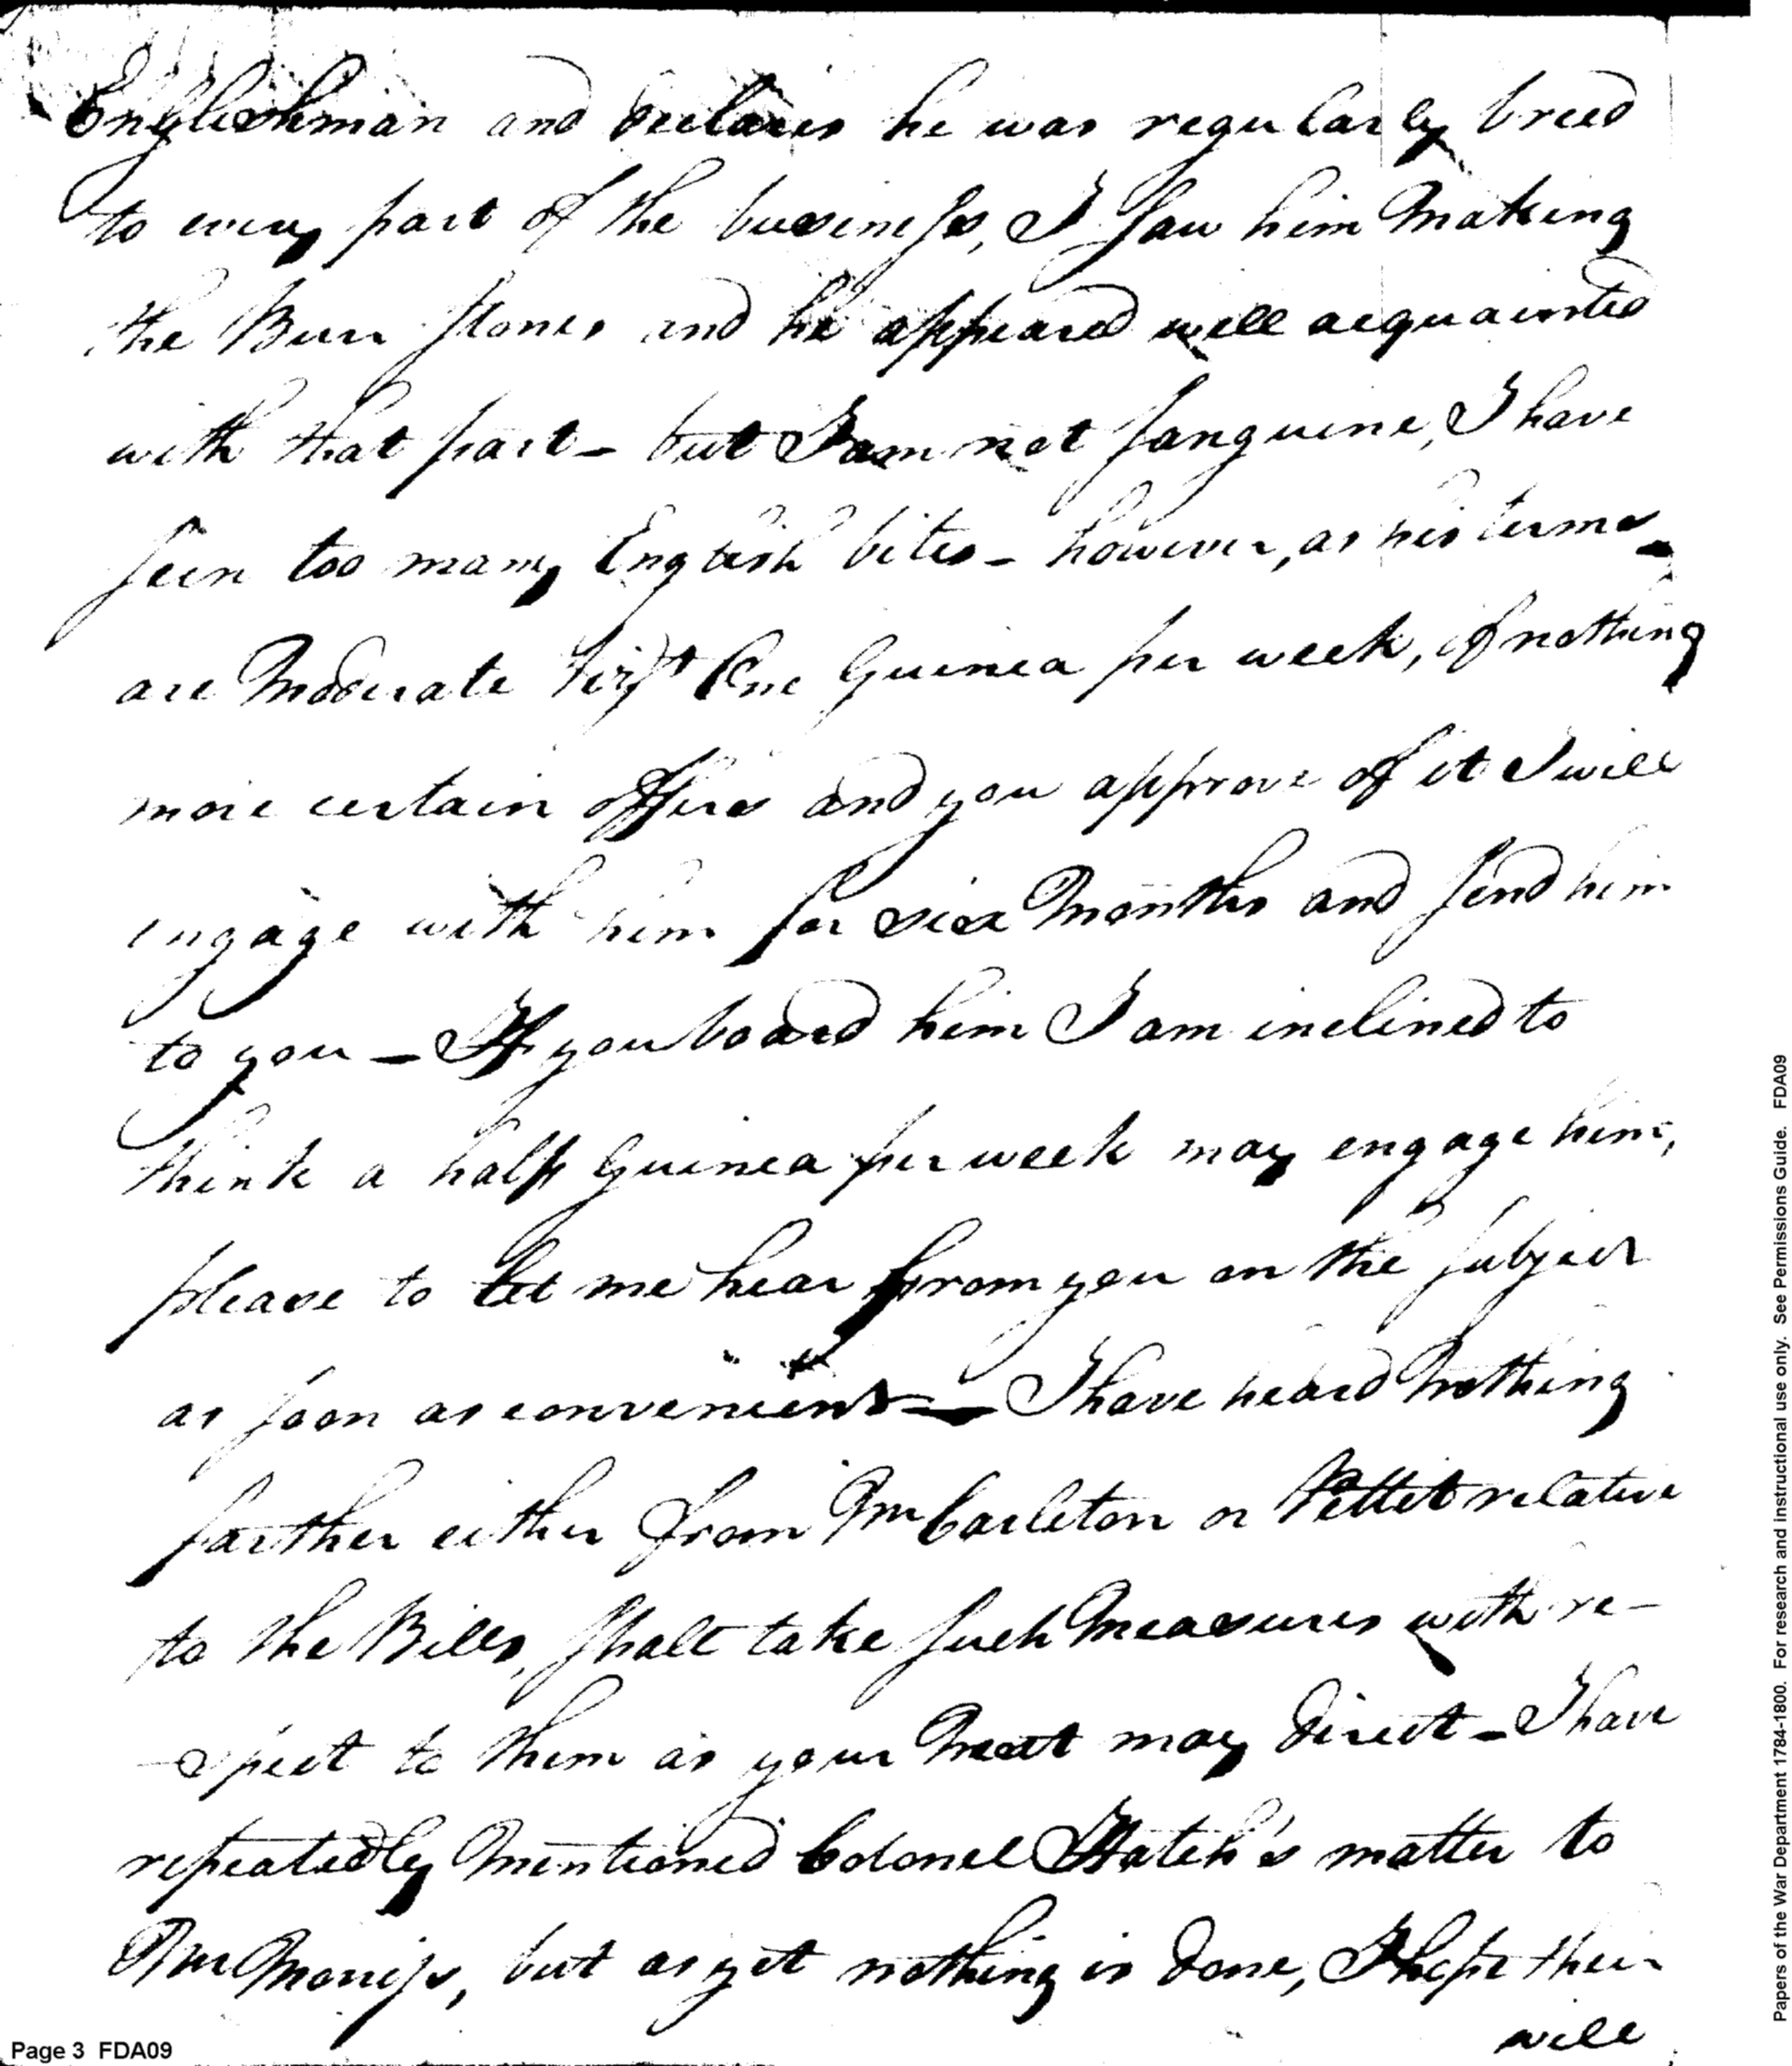 Englishman and declares he was regularly breed
to every part of the business, I saw him Making
the Burr stones and he appeared well acquainted
with that part - but I am not sanguine, I have
seen too many English bites - however, as his terms
are Moderate One Guinea per week, if nothing
more certain offers and you approve of it I will
engage with him for six Months and send him
to you - If you board him I am inclined to
think a half Guinea per week may engage him,
please to let me hear from you on the subject
as soon as convenient - I have heard Nothing
farther either from Mr Carleton or Pettit relative
to the Bills, shall take such Measures with re-
-spect to them as your Next may direct - I have
repeatedly Mentioned Colonel Hatch's matter to
Mr Morriss, but as yet nothing is done, I hope their
will
Page 3 FDA09
Papers of the War Department 1784-1800. For research and instructional use only. See Permissions Guide. FDA09